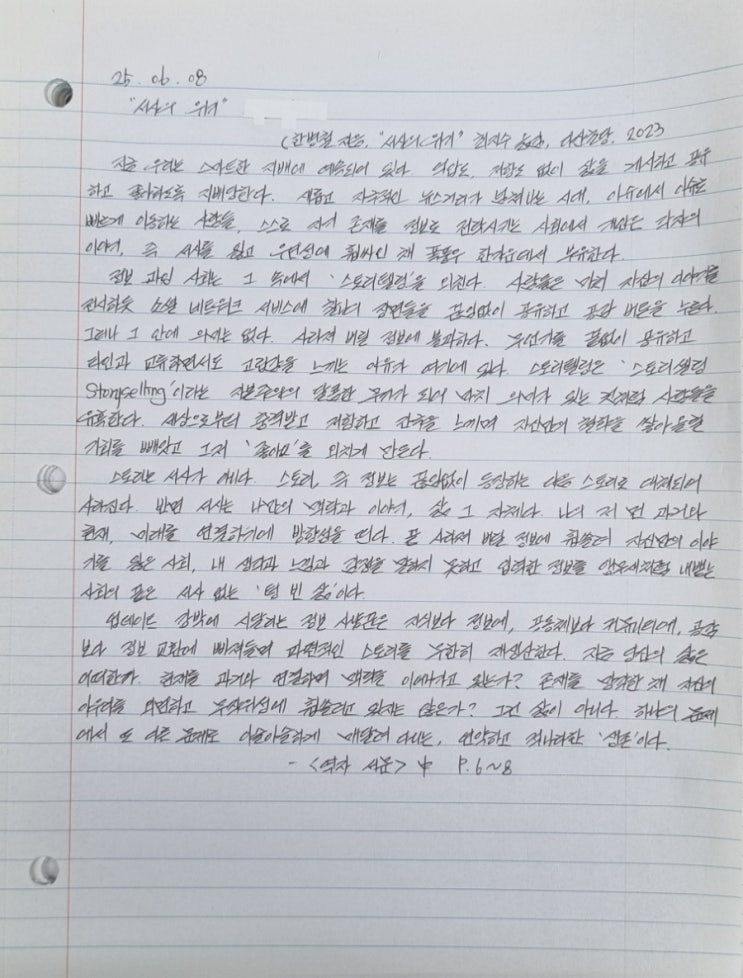 25. 06. 08
"서사의 위기"
(한병철 지음, "서사의 위기" 최지수 옮김, 다산초당, 2023
지금 우리는 스마트한 지배에 예속되어 있다. 억압도, 저항도 없이 삶을 게시하고 공유
하고 좋아하도록 지배당한다. 새롭고 자극적인 뉴스거리가 넘쳐나는 시대, 이슈에서 이슈로
빠르게 이동하는 사람들, 스스로 자기 존재를 정보로 전락시키는 사회에서 개인은 각자의
이야기, 즉 서사를 잃고 우연성에 휩싸인 채 폭풍우 한가운데서 부유한다.
정보 과잉 사회는 그 속에서 '스토리텔링'을 외친다. 사람들은 마치 자신의 이야기를
전시하듯 소셜 네트워크 서비스에 찰나의 장면들을 끊임없이 공유하고 공감 버튼을 누른다.
그러나 그 안에 의미는 없다. 사라져 버릴 정보에 불과하다. 무언가를 끝없이 공유하고
타인과 교류하면서도 고립감을 느끼는 이유가 여기에 있다. 스토리텔링은 '스토리셀링
Storyselling'이라는 자본주의의 달콤한 무기가 되어 마치 의미가 있는 것처럼 사람들을
유혹한다. 세상으로부터 충격받고 저항하고 간극을 느끼며 자신만의 철학을 쌓아 올릴
기회를 빼앗고 그저 '좋아요'를 외치게 만든다.
스토리는 서사가 아니다. 스토리, 즉 정보는 끊임없이 등장하는 다음 스토리로 대체되어
사라진다. 반면 서사는 나만의 맥락과 이야기, 삶 그 자체다. 나의 저 먼 과거와
현재, 미래를 연결하기에 방향성을 띤다. 곧 사라져 버릴 정보에 휩쓸려 자신만의 이야
기를 잃은 사회, 내 생각과 느낌과 감정을 말하지 못하고 입력한 정보를 앵무새처럼 내뱉는
사회의 끝은 서사 없는 '텅 빈 삶'이다.
업데이트 강박에 시달리는 정보 사냥꾼은 지식보다 정보에, 공동체보다 커뮤니티에, 공감
보다 정보 교환에 빠져들며 파편적인 스토리를 무한히 재생산한다. 지금 당신의 삶은
어떠한가. 현재를 과거와 연결하며 맥락을 이어가고 있는가? 존재를 망각한 채 자신의
이야기를 외면하고 무작위성에 휩쓸리고 있지는 않은가? 그건 삶이 아니다. 하나의 문제
에서 또 다른 문제로 아슬아슬하게 매달려 다니는, 연약하고 적나라한 '생존'이다.
- <역자 서문> 中 P.6~8